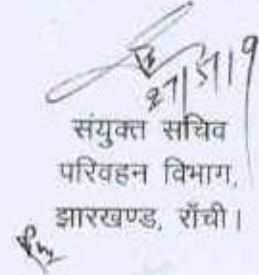 संयुक्त सचिव
परिवहन विभाग,
झारखण्ड, राँची।